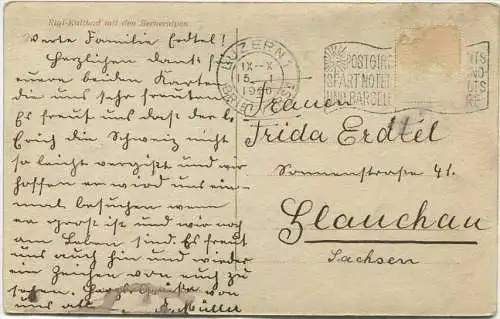 Rigi-Kaltbad mit den Berneralpen
Werte Familie Erdtel!
Herzlichen Dank für
euere beiden Karten
die uns sehr freuten.
Es freut uns daß der lb
Erich die Schweiz nicht
so leicht vergißt und wir
hoffen er wird uns ein-
mal besuchen wenn
er groß ist und wir noch
am Leben sind. Es freut
uns auch hin und wieder
ein Zeichen von euch zu
sehen. Herzl. Grüße von
uns all A. Müller
LUZERN 1
IX–X
15. I
1920
POSTGIRO
SPART NOTEN
UND BARGELD
Frauen
Frida Erdtel
Sonnenstraße 41.
Glauchau
Sachsen